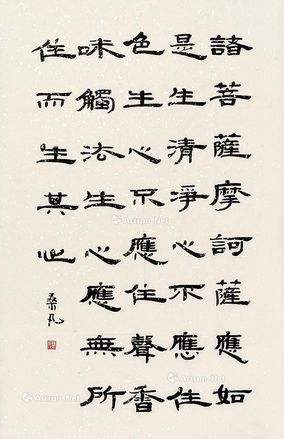 諸菩薩摩訶薩應如
是生清淨心不應住
色生心不應住聲香
味觸法生心應無所
住而生其心
桑凡